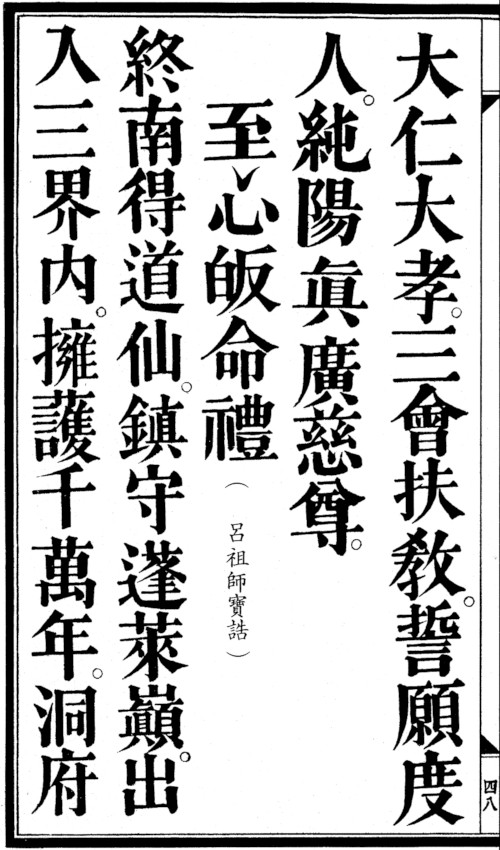 大仁大孝。三會扶教。誓願度
人。純陽眞廣慈尊。
至心皈命禮(呂祖師寶誥)
終南得道仙。鎮守蓬萊巔。出
入三界內。擁護千萬年。洞府
四八